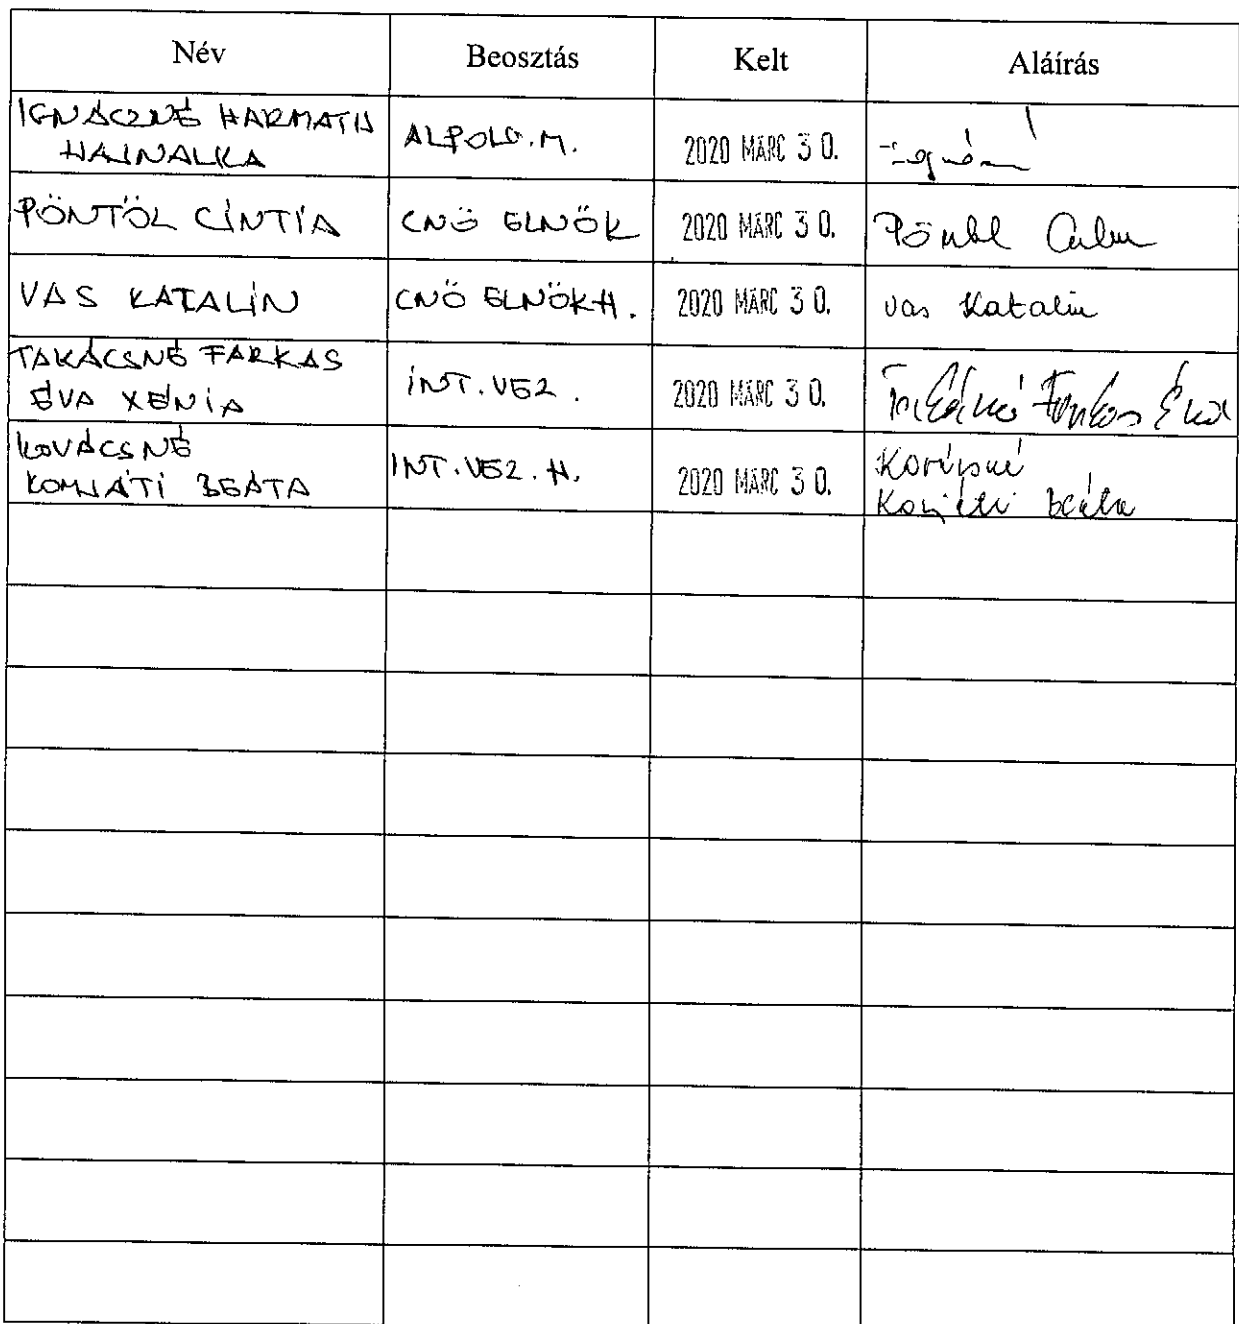 Név Beosztás Kelt Aláírás
IGNÁCZNÉ HARMATH
HAJNALKA ALPOLG.M. 2020 MÁRC 30.
PÖNTÖL CINTIA CNÖ ELNÖK 2020 MÁRC 30. Pöntöl
VAS KATALIN CNÖ ELNÖKH. 2020 MÁRC 30. Vas Katalin
TAKÁCSNÉ FARKAS
ÉVA XÉNIA INT.VEZ. 2020 MÁRC 30. Takácsné Farkas Éva
KOVÁCSNÉ
KOMJÁTI BEÁTA INT.VEZ.H. 2020 MÁRC 30. Kovácsné
Komjáti Beáta